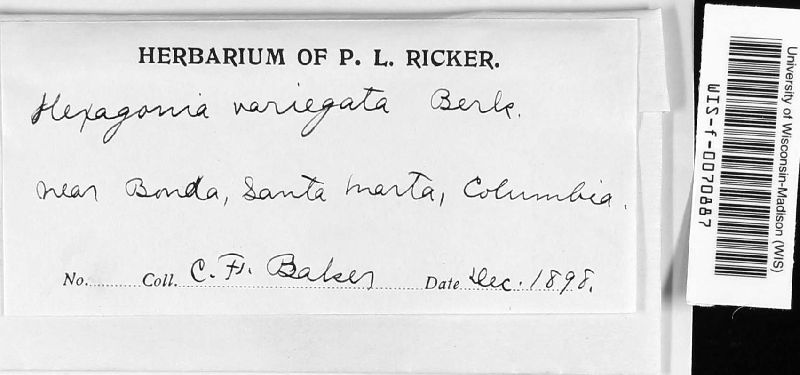 HERBARIUM OF P. L. RICKER.
Hexagonia variegata Berk.
near Bonda, Santa Marta, Columbia.
No. Coll. C. F. Baker Date Dec. 1898.
University of Wisconsin-Madison (WIS)
WIS-f-0070887